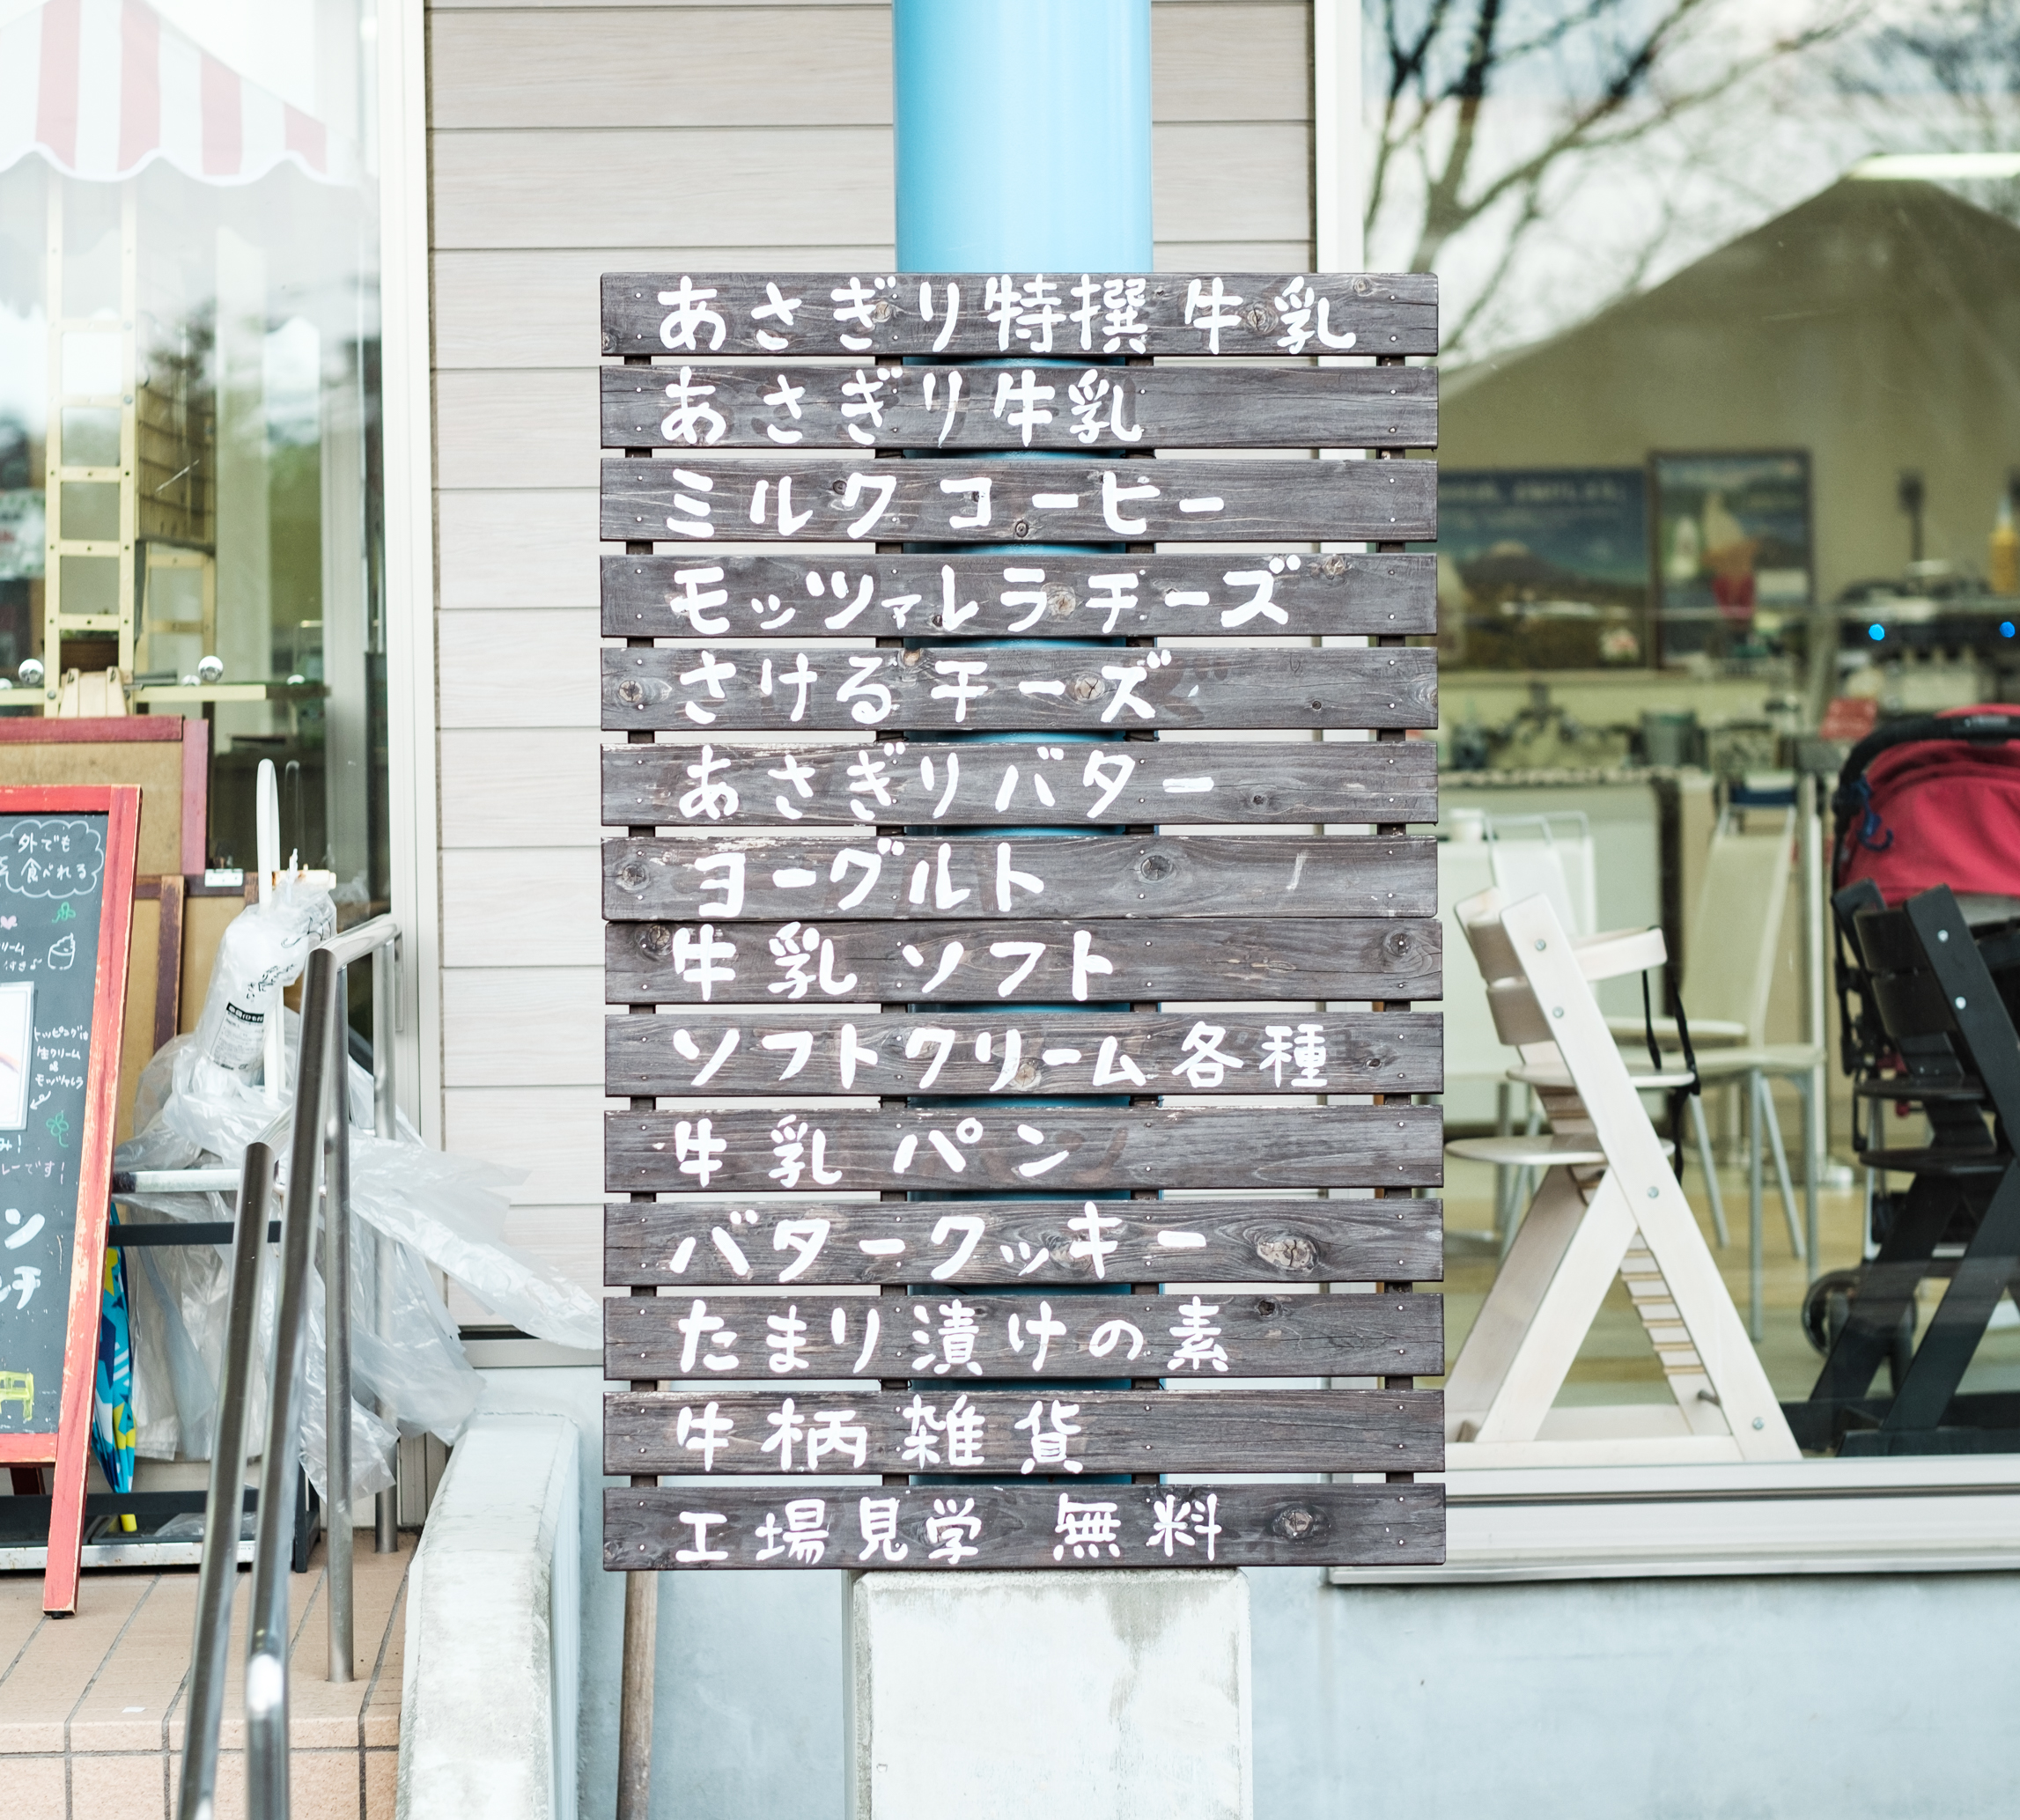 あさぎり特撰牛乳
あさぎり牛乳
ミルクコーヒー
モッツァレラチーズ
さけるチーズ
あさぎりバター
ヨーグルト
牛乳ソフト
ソフトクリーム各種
牛乳パン
バタークッキー
たまり漬けの素
牛柄雑貨
工場見学 無料
外でも
食べれる
トッピングは
生クリーム
モッツァレラ